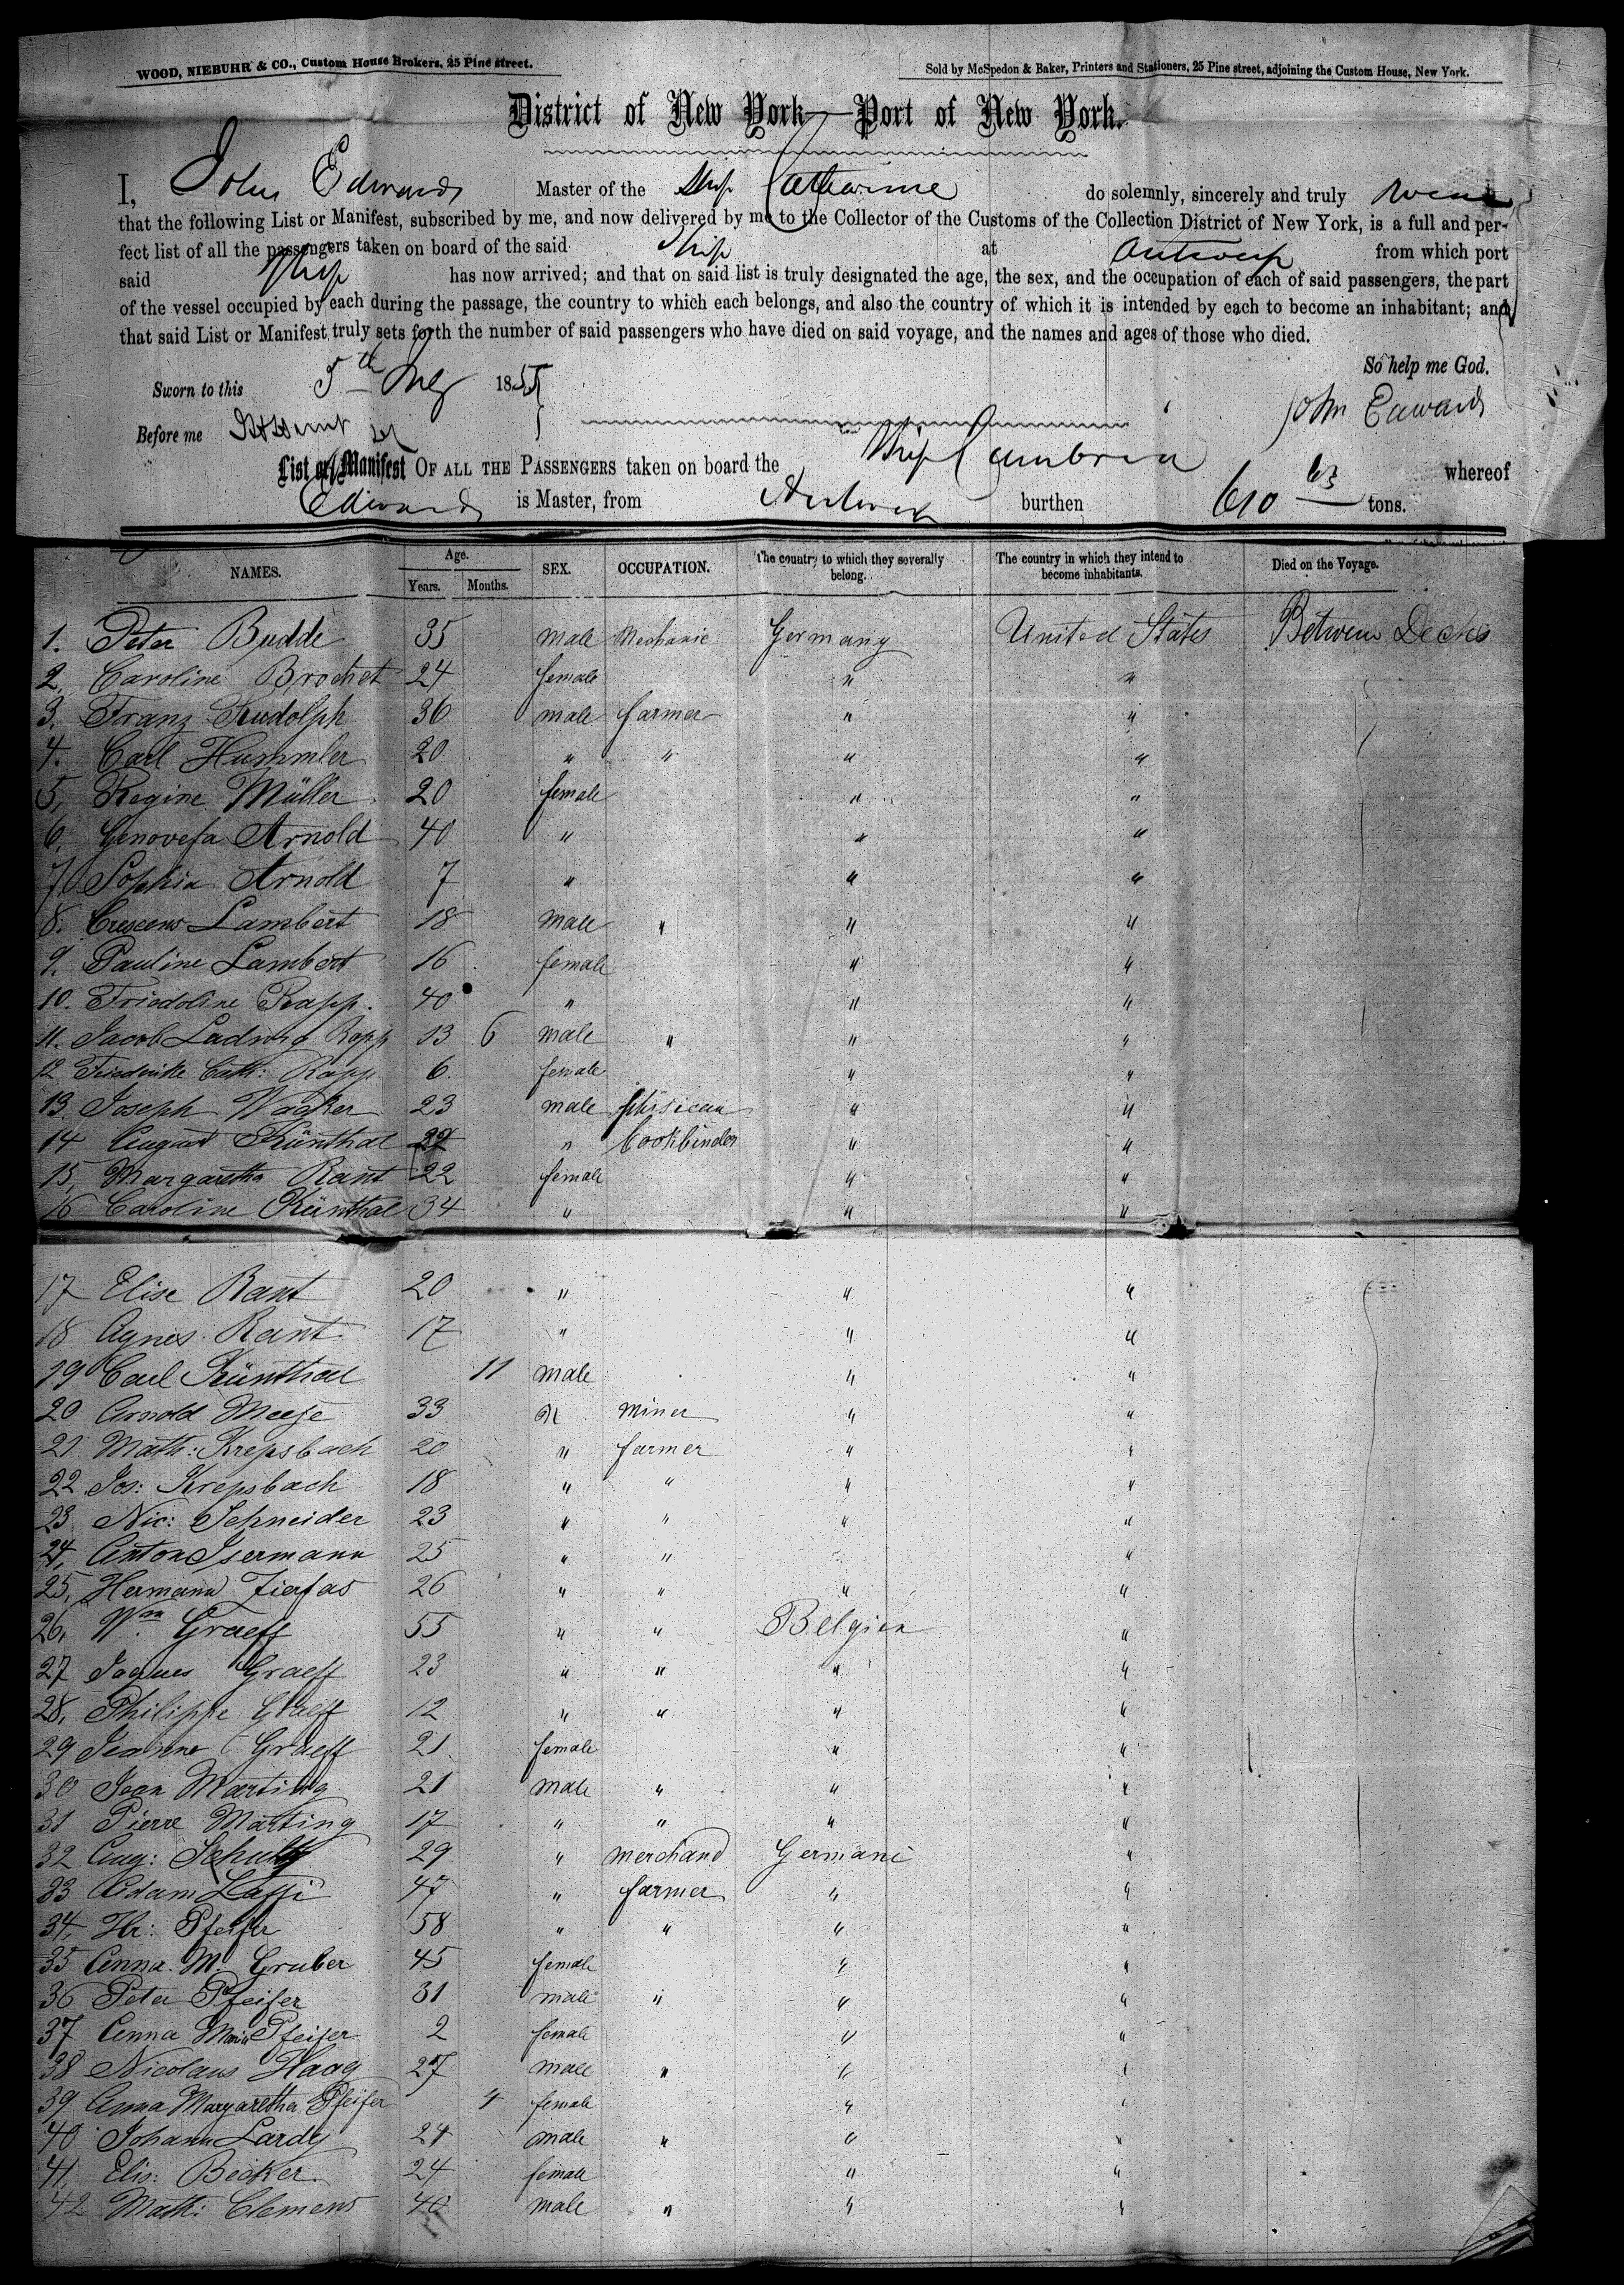 WOOD, NIEBUHR & CO., Custom House Brokers, 25 Pine street.
Sold by McSpedon & Baker, Printers and Stationers, 25 Pine street, adjoining the Custom House, New York.
District of New York—Port of New York.
I, John Edwards Master of the Ship Catharine do solemnly, sincerely and truly swear
that the following List or Manifest, subscribed by me, and now delivered by me to the Collector of the Customs of the Collection District of New York, is a full and per-
fect list of all the passengers taken on board of the said Ship at Antwerp from which port
said Ship has now arrived; and that on said list is truly designated the age, the sex, and the occupation of each of said passengers, the part
of the vessel occupied by each during the passage, the country to which each belongs, and also the country of which it is intended by each to become an inhabitant; and
that said List or Manifest truly sets forth the number of said passengers who have died on said voyage, and the names and ages of those who died.
So help me God.
Sworn to this 5th 1855
John Edwards
Before me
List or Manifest OF ALL THE PASSENGERS taken on board the Ship Cambria whereof
Edwards is Master, from Antwerp burthen 610 63 tons.
NAMES. Age. Years. Months. SEX. OCCUPATION. The country to which they severally belong. The country in which they intend to become inhabitants. Died on the Voyage.
1. Peter Budde 35 male Mechanic Germany United States Between Decks
2. Caroline Brochet 24 female " "
3. Franz Rudolph 36 male farmer " "
4. Carl Hummler 20 " " " "
5, Regine Müller 20 female " "
6. Genovefa Arnold 40 " " "
7. Sophia Arnold 7 " " "
8. Crescens Lambert 18 male " " "
9. Pauline Lambert 16 female " "
10. Friedoline Rapp. 40 " " "
11. Jacob Ludwig Rapp 13 6 male " " "
12 Friedericke Cath: Rapp 6. female " "
13. Joseph Wacker 23 male phisician " "
14 August Künthal " bookbinder " "
15, Margaretha Rant 22 female " "
16 Caroline Künthal 34 " " "
17 Elise Rant 20 " " "
18 Agnes Rant 17 " " "
19 Carl Künthal 11 male " "
20 Arnold Meese 33 " miner " "
21 Math: Krepsbach 20 " farmer " "
22 Jos: Krepsbach 18 " " " "
23 Nic: Schneider 23 " " " "
24, Anton Isermann 25 " " " "
25, Hermann Zierfas 26 " " " "
26, Wm Graeff 55 " " Belgien "
27 Jaques Graeff 23 " " " "
28, Philippe Graeff 12 " " " "
29 Jeanne Graeff 21 female " "
30 Jean Marting 21 male " " "
31 Pierre Marting 17 " " " "
32 Aug: Schultz 29 " merchand Germani "
33 Adam Laffi 47 " farmer " "
34, Hr: Pfeifer 58 " " " "
35 Anna M. Gruber 45 female " "
36 Peter Pfeifer 31 male " " "
37 Anna Maria Pfeifer 2 female " "
38 Nicolaus Haag 27 male " " "
39 Anna Margaretha Pfeifer 4 female " "
40 Johann Lardy 24 male " " "
41, Elis: Becker 24 female " "
42 Math: Clemens 40 male " " "